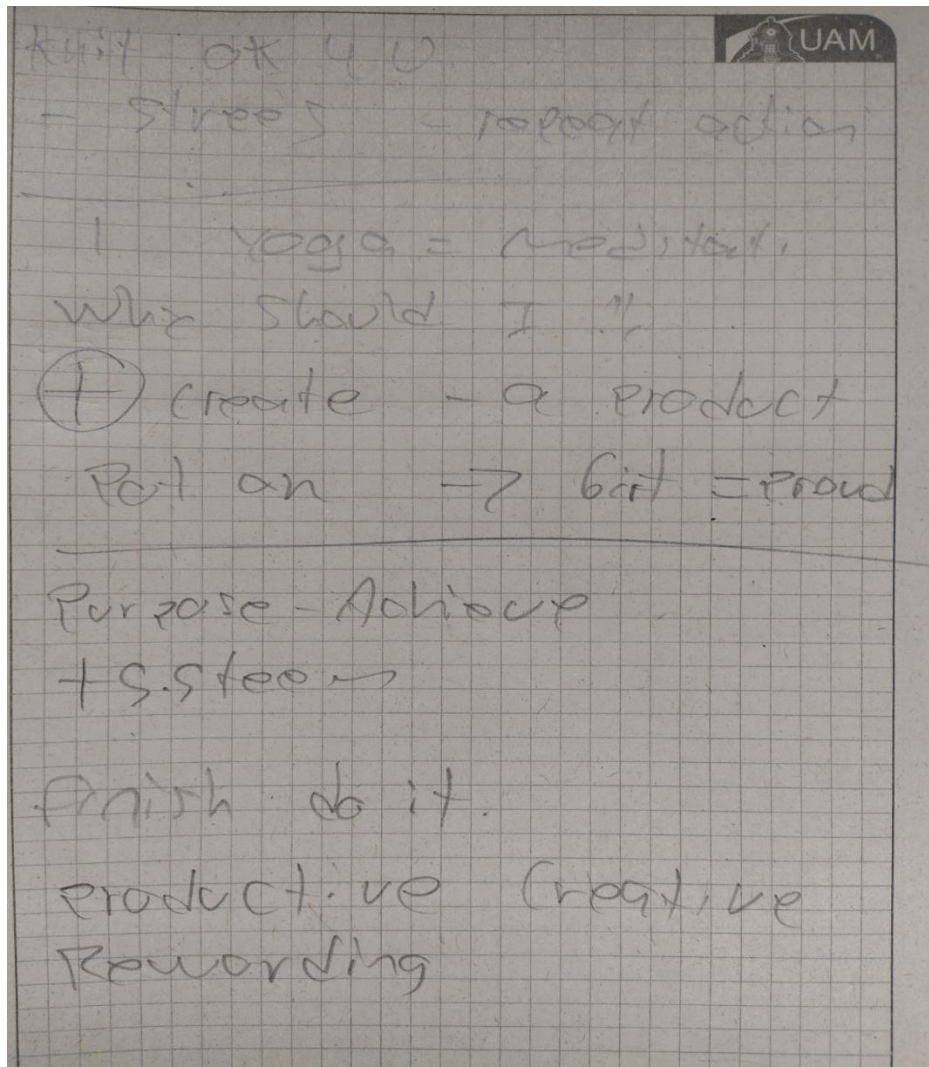 UAM
Knit OK 4 U
- Strees - repeat action
Yoga = Meditati.
Why Should I
+ Create - a Product
Put on -> Girt = Proud
Purpose - Achieve
+ S.Steem
finish do it.
Productive Creative
Rewarding